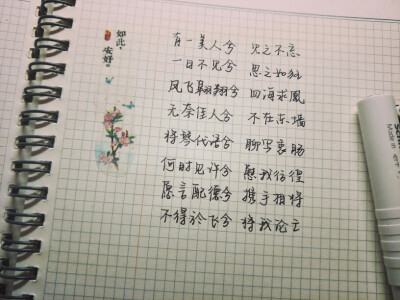 如此,
安好。
有一美人兮 见之不忘
一日不见兮 思之如狂
凤飞翱翔兮 四海求凰
无奈佳人兮 不在东墙
将琴代语兮 聊写衷肠
何时见许兮 慰我彷徨
愿言配德兮 携手相将
不得於飞兮 使我沦亡